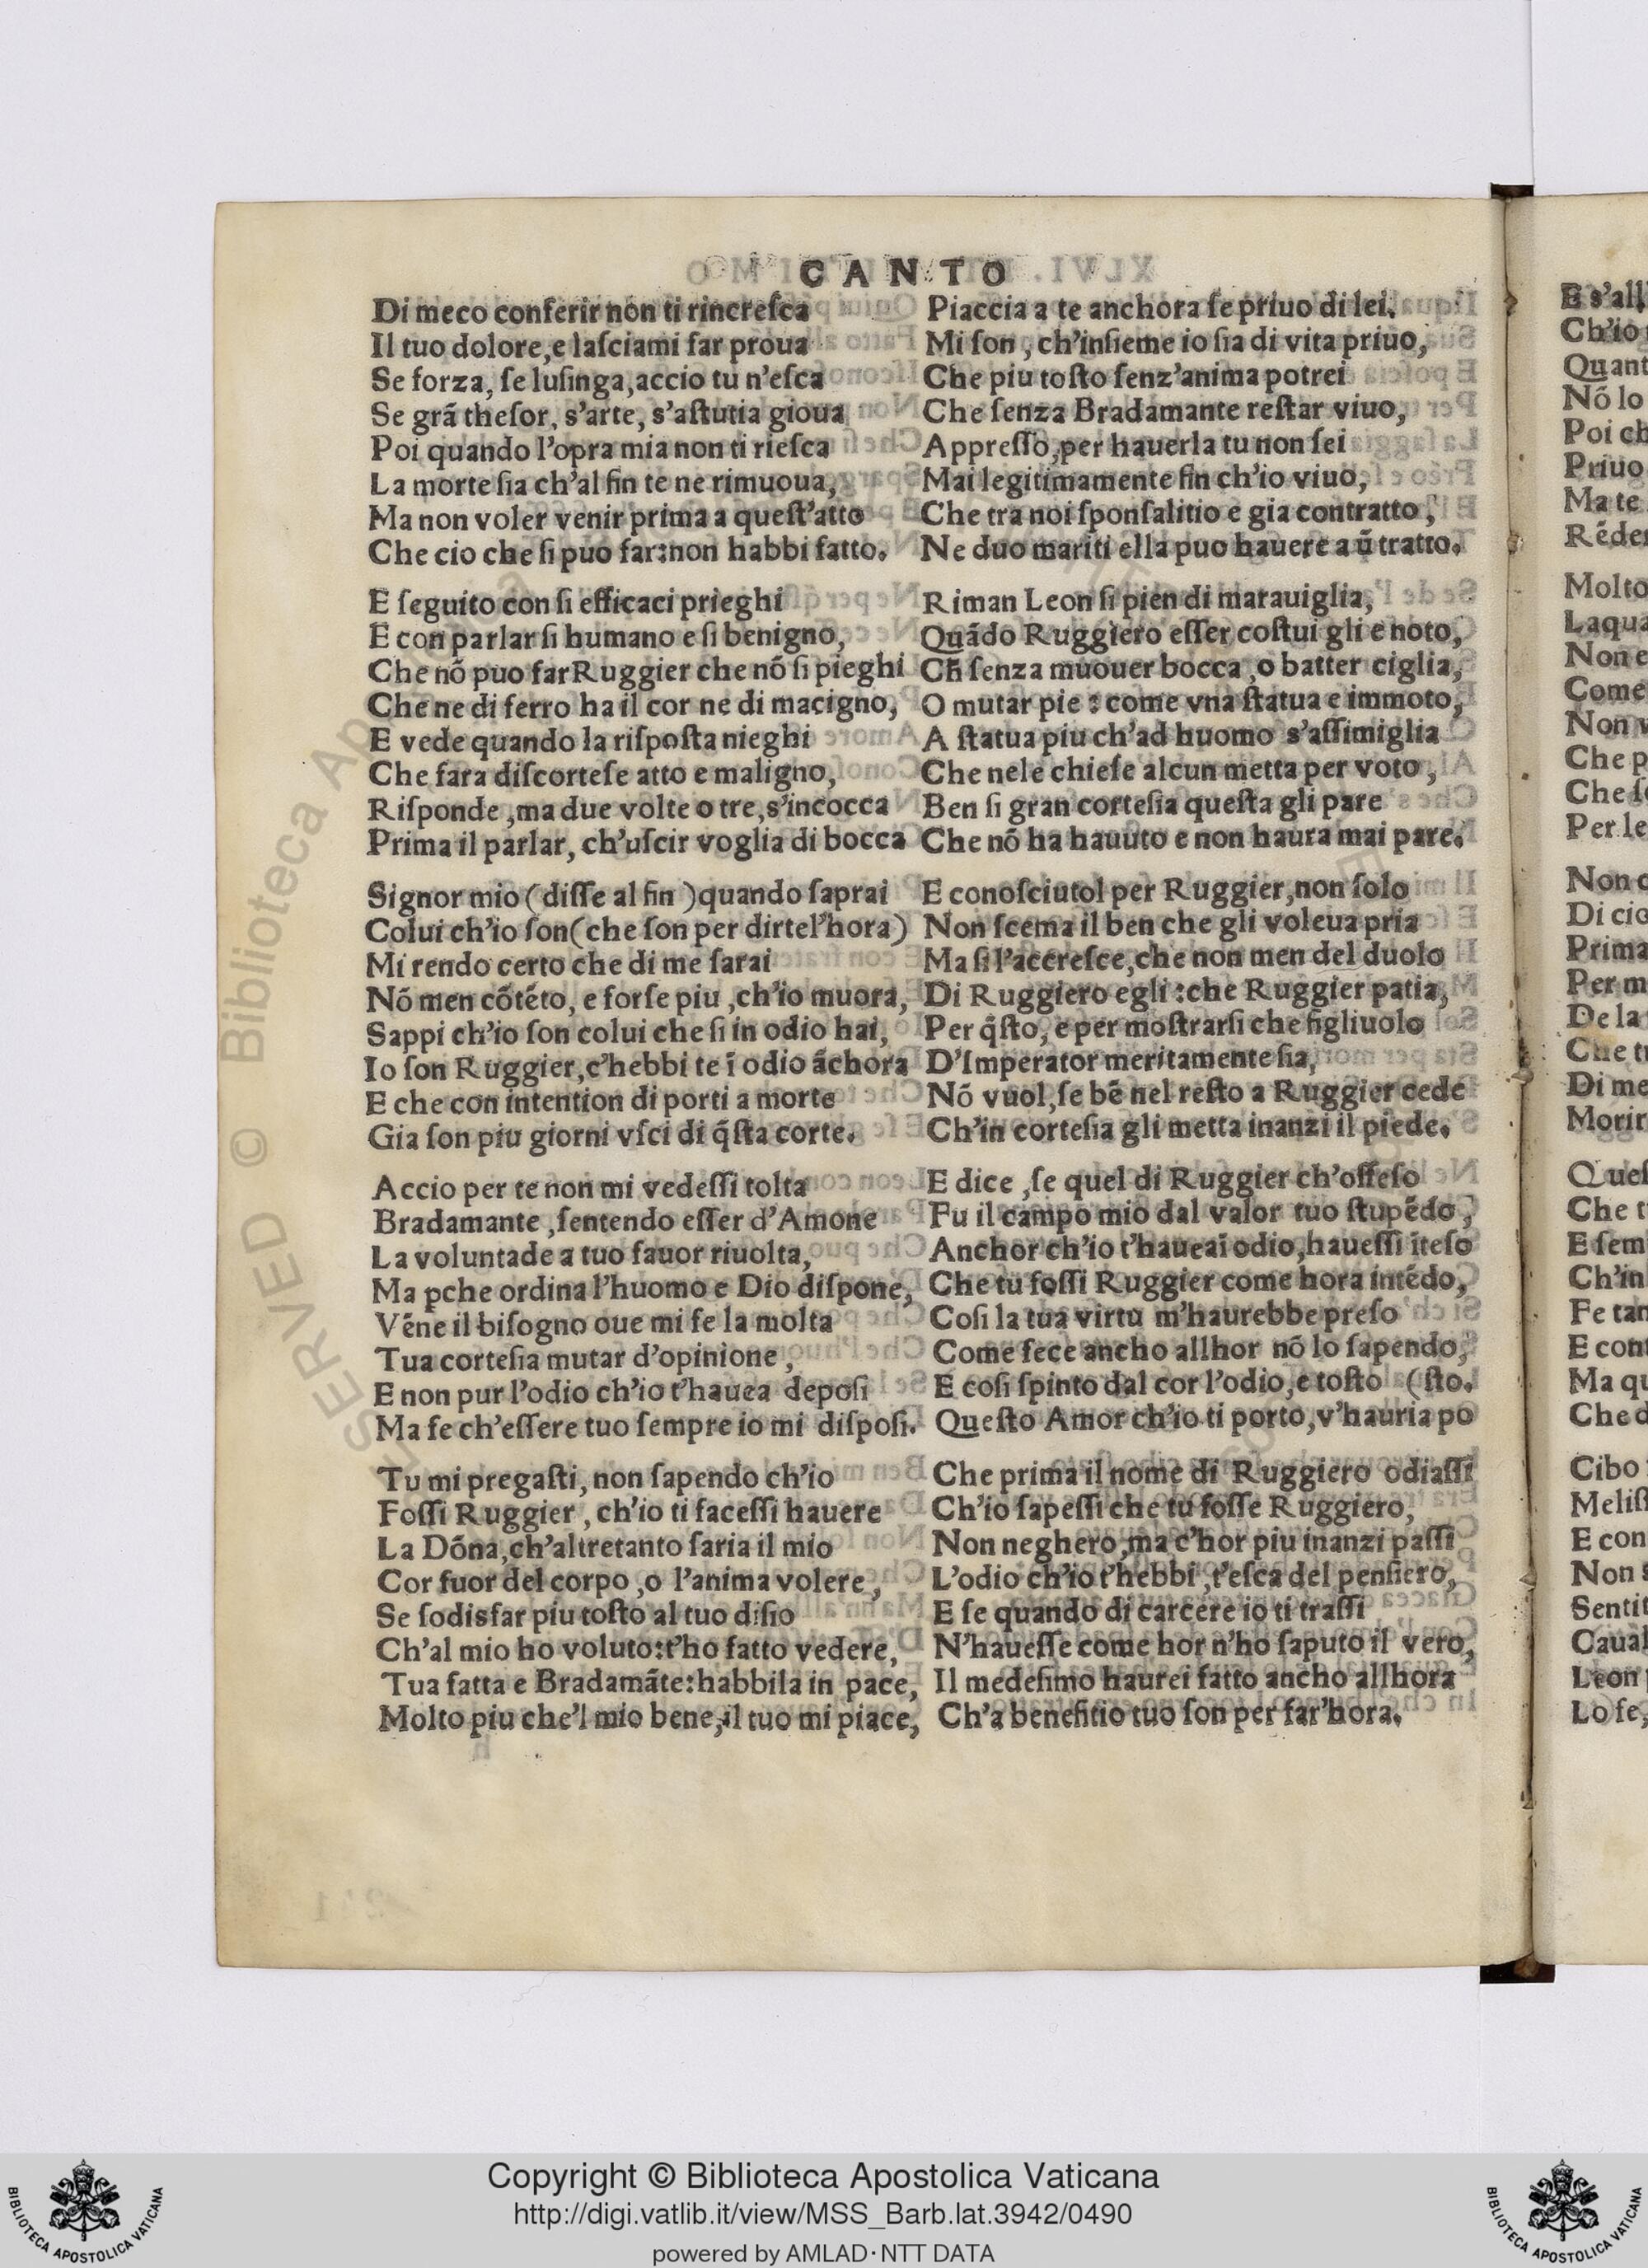 CANTO
Di meco conferir non ti rincreſca
Il tuo dolore, e laſciami far proua
Se forza, ſe luſinga, accio tu n'eſca
Se grã theſor, s'arte, s'aſtutia gioua
Poi quando l'opra mia non ti rieſca
La morte ſia ch'al fin te ne rimuoua,
Ma non voler venir prima a queſt'atto
Che cio che ſi puo far: non habbi fatto.
E ſeguito con ſi efficaci prieghi
E con parlar ſi humano e ſi benigno,
Che nõ puo far Ruggier che nõ ſi pieghi
Che ne di ferro ha il cor ne di macigno,
E vede quando la riſpoſta nieghi
Che fara diſcorteſe atto e maligno,
Riſponde, ma due volte o tre, s'incocca
Prima il parlar, ch'uſcir voglia di bocca
Signor mio (diſſe al fin) quando ſaprai
Colui ch'io ſon (che ſon per dirtel'hora)
Mi rendo certo che di me ſarai
Nõ men cõtẽto, e forſe piu, ch'io muora,
Sappi ch'io ſon colui che ſi in odio hai,
Io ſon Ruggier, c'hebbi te ĩ odio ãchora
E che con intention di porti a morte
Gia ſon piu giorni vſci di q̃ſta corte.
Accio per te non mi vedeſſi tolta
Bradamante, ſentendo eſſer d'Amone
La voluntade a tuo fauor riuolta,
Ma ꝑche ordina l'huomo e Dio diſpone,
Vẽne il biſogno oue mi fe la molta
Tua corteſia mutar d'opinione,
E non pur l'odio ch'io t'hauea depoſi
Ma fe ch'eſſere tuo ſempre io mi diſpoſi.
Tu mi pregaſti, non ſapendo ch'io
Foſſi Ruggier, ch'io ti faceſſi hauere
La Dõna, ch'altretanto ſaria il mio
Cor fuor del corpo, o l'anima volere,
Se ſodisfar piu toſto al tuo diſio
Ch'al mio ho voluto: t'ho fatto vedere,
Tua fatta e Bradamãte: habbila in pace,
Molto piu che'l mio bene, il tuo mi piace,
Piaccia a te anchora ſe priuo di lei.
Mi ſon, ch'inſieme io ſia di vita priuo,
Che piu toſto ſenz'anima potrei
Che ſenza Bradamante reſtar viuo,
Appreſſo, per hauerla tu non ſei
Mai legitimamente fin ch'io viuo,
Che tra noi ſponſalitio e gia contratto,
Ne duo mariti ella puo hauere a ũ tratto.
Riman Leon ſi pien di marauiglia,
Quãdo Ruggiero eſſer coſtui gli e noto,
Cħ ſenza muouer bocca, o batter ciglia,
O mutar pie: come vna ſtatua e immoto,
A ſtatua piu ch'ad huomo s'aſſimiglia
Che nele chieſe alcun metta per voto,
Ben ſi gran corteſia queſta gli pare
Che nõ ha hauuto e non haura mai pare.
E conoſciutol per Ruggier, non ſolo
Non ſcema il ben che gli voleua pria
Ma ſi l'accreſce, che non men del duolo
Di Ruggiero egli: che Ruggier patia,
Per q̃ſto, e per moſtrarſi che figliuolo
D'Imperator meritamente ſia,
Nõ vuol, ſe bẽ nel reſto a Ruggier cede
Ch'in corteſia gli metta inanzi il piede.
E dice, ſe quel di Ruggier ch'offeſo
Fu il campo mio dal valor tuo ſtupẽdo,
Anchor ch'io t'haueaĩ odio, haueſſi ĩteſo
Che tu foſſi Ruggier come hora intẽdo,
Coſi la tua virtu m'haurebbe preſo
Come fece ancho allhor nõ lo ſapendo,
E coſi ſpinto dal cor l'odio, e toſto (ſto.
Queſto Amor ch'io ti porto, v'hauria po
Che prima il nome di Ruggiero odiaſſi
Ch'io ſapeſſi che tu foſſe Ruggiero,
Non neghero, ma c'hor piu inanzi paſſi
L'odio ch'io t'hebbi, t'eſca del penſiero,
E ſe quando di carcere io ti traſſi
N'haueſſe come hor n'ho ſaputo il vero,
Il medeſimo haurei fatto ancho allhora
Ch'a benefitio tuo ſon per far'hora.
E s'all
Ch'io
Quant
Nõ lo
Poi ch
Priuo
Ma te
Rẽder
Molto
Laqua
Non e
Come
Non v
Che p
Che ſ
Per le
Non c
Di cio
Prima
Per m
De la
Che t
Di me
Morir
Queſ
Che t
E ſem
Ch'in
Fe tan
E cont
Ma qu
Che d
Cibo
Meliſſ
E con
Non s
Sentit
Caual
Leon
Lo fe,
SERVED © Biblioteca Ap
Copyright © Biblioteca Apostolica Vaticana
http://digi.vatlib.it/view/MSS_Barb.lat.3942/0490
powered by AMLAD·NTT DATA
BIBLIOTECA APOSTOLICA VATICANA
BIBLIOTECA APOSTOLICA VATICANA